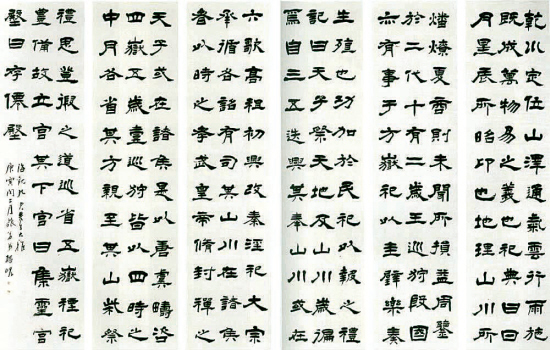 乾川定位山澤通氣雲行雨施
既成萬物易之義也祀典曰日
月星辰所昭卬也地理山川所
燔燎夏商則未聞所損益周鑒
於二代十有二歲王巡狩殷國
亦有事于方嶽祀以圭璧樂奏
生殖也功加於民祀以報之禮
記曰天子祭天地及山川歲徧
焉自三五迭興其奉山川或在
六歌高祖初興改秦淫祀大宗
承循各詔有司其山川在諸侯
者以時祠之孝武皇帝脩封禪之
天子或在諸侯是以唐虞疇咨
四嶽五歲壹巡狩皆以四時之
中月各省其方親至其山柴祭
禮思登假之道巡省五嶽禋祀
豐備故立宮其下宮曰集靈宮
殿曰存僊殿
庚寅